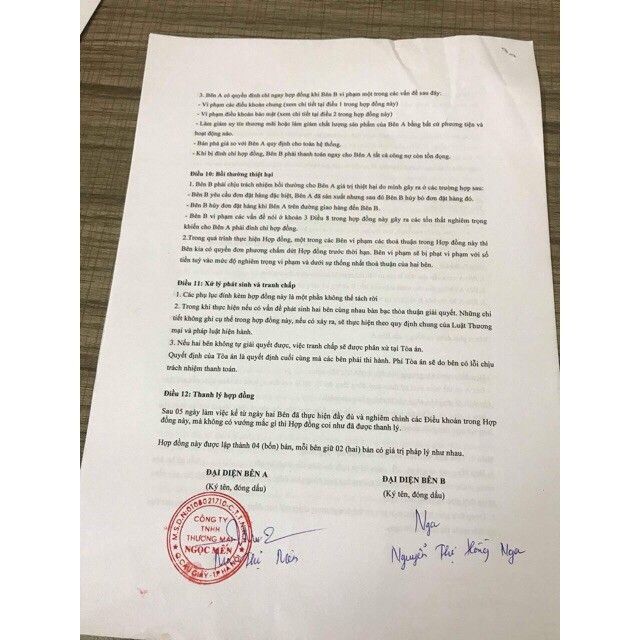 3. Bên A có quyền đình chỉ ngay hợp đồng khi Bên B vi phạm một trong các vấn đề sau đây:
- Vi phạm các điều khoản chung (xem chi tiết tại điều 1 trong hợp đồng này)
- Vi phạm điều khoản bảo mật (xem chi tiết tại điều 2 trong hợp đồng này)
- Làm giảm uy tín thương mãi hoặc làm giảm chất lượng sản phẩm của Bên A bằng bất cứ phương tiện và
hoạt động nào.
- Bán phá giá so với Bên A quy định cho toàn hệ thống.
- Khi bị đình chỉ hợp đồng, Bên B phải thanh toán ngay cho Bên A tất cả công nợ còn tồn đọng.
Điều 10: Bồi thường thiệt hại
1. Bên B phải chịu trách nhiệm bồi thường cho Bên A giá trị thiệt hại do mình gây ra ở các trường hợp sau:
- Bên B yêu cầu đơn đặt hàng đặc biệt, Bên A đã sản xuất nhưng sau đó Bên B hủy bỏ đơn đặt hàng đó.
- Bên B hủy đơn đặt hàng khi Bên A trên đường giao hàng đến Bên B.
- Bên B vi phạm các vấn đề nói ở khoản 3 Điều 8 trong hợp đồng này gây ra các tổn thất nghiêm trọng
khiến cho Bên A phải đình chỉ hợp đồng.
2.Trong quá trình thực hiện Hợp đồng, một trong các Bên vi phạm các thoả thuận trong Hợp đồng này thì
Bên kia có quyền đơn phương chấm dứt Hợp đồng trước thời hạn. Bên vi phạm sẽ bị phạt vi phạm với số
tiền tuỳ vào mức độ nghiêm trọng vi phạm và dưới sự thống nhất thoả thuận của hai bên.
Điều 11: Xử lý phát sinh và tranh chấp
1. Các phụ lục đính kèm hợp đồng này là một phần không thể tách rời
2. Trong khi thực hiện nếu có vấn đề phát sinh hai bên cùng nhau bàn bạc thỏa thuận giải quyết. Những chi
tiết không ghi cụ thể trong hợp đồng này, nếu có xảy ra, sẽ thực hiện theo quy định chung của Luật Thương
mại và pháp luật hiện hành.
3. Nếu hai bên không tự giải quyết được, việc tranh chấp sẽ được phân xử tại Tòa án.
Quyết định của Tòa án là quyết định cuối cùng mà các bên phải thi hành. Phí Tòa án sẽ do bên có lỗi chịu
trách nhiệm thanh toán.
Điều 12: Thanh lý hợp đồng
Sau 05 ngày làm việc kể từ ngày hai Bên đã thực hiện đầy đủ và nghiêm chỉnh các Điều khoản trong Hợp
đồng này, mà không có vướng mắc gì thì Hợp đồng coi như đã được thanh lý.
Hợp đồng này được lập thành 04 (bốn) bản, mỗi bên giữ 02 (hai) bản có giá trị pháp lý như nhau.
ĐẠI DIỆN BÊN A
(Ký tên, đóng dấu)
ĐẠI DIỆN BÊN B
(Ký tên, đóng dấu)
M.S.D.N:0108021710-C.T.T.N.H.H
CÔNG TY
TNHH
THƯƠNG MẠI
NGỌC MẾN
Q.CẦU GIẤY-TP HÀ NỘI
Thị Mến
Nga
Nguyễn Thị Hồng Nga